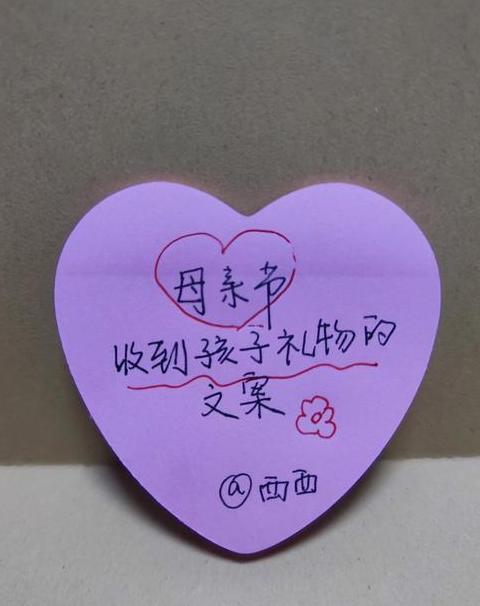 母亲节
收到孩子礼物的
文案
@西西